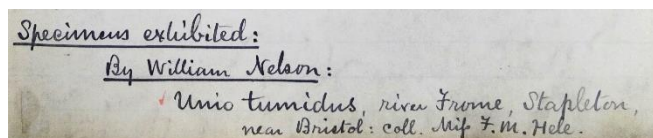 Specimens exhibited:
By William Nelson:
Unio tumidus, river Frome, Stapleton,
near Bristol: coll. Miſs F.M. Hele.